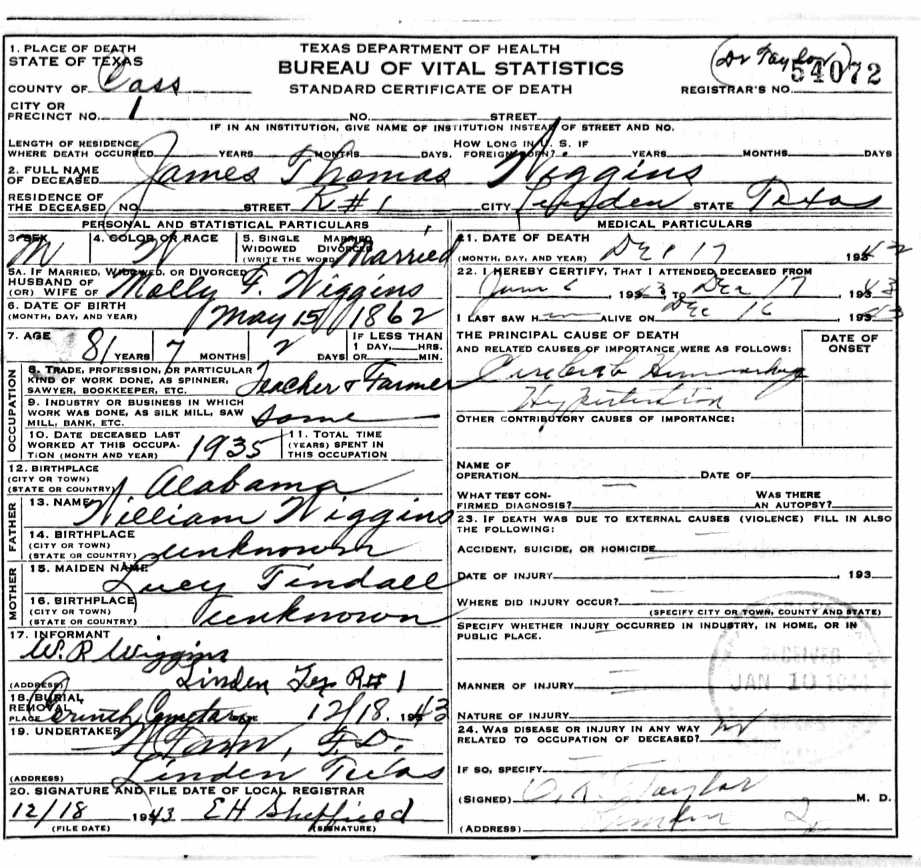 1. PLACE OF DEATH
STATE OF TEXAS
COUNTY OF Cass
CITY OR
PRECINCT NO. 1
TEXAS DEPARTMENT OF HEALTH
BUREAU OF VITAL STATISTICS
STANDARD CERTIFICATE OF DEATH
(Dr Taylor)
REGISTRAR'S NO. 54072
NO. STREET
IF IN AN INSTITUTION, GIVE NAME OF INSTITUTION INSTEAD OF STREET AND NO.
LENGTH OF RESIDENCE
WHERE DEATH OCCURRED YEARS MONTHS DAYS.
HOW LONG IN U. S. IF
FOREIGN BORN? YEARS MONTHS DAYS
2. FULL NAME
OF DECEASED James Thomas Wiggins
RESIDENCE OF
THE DECEASED NO. STREET R#1 CITY Linden STATE Texas
PERSONAL AND STATISTICAL PARTICULARS
3. SEX M
4. COLOR OR RACE W
5. SINGLE MARRIED
WIDOWED DIVORCED
(WRITE THE WORD) Married
5A. IF MARRIED, WIDOWED, OR DIVORCED
HUSBAND OF
(OR) WIFE OF Molly F. Wiggins
6. DATE OF BIRTH
(MONTH, DAY, AND YEAR) May 15 1862
7. AGE 81 YEARS 7 MONTHS 2 DAYS
IF LESS THAN
1 DAY, HRS.
OR MIN.
OCCUPATION
8. TRADE, PROFESSION, OR PARTICULAR
KIND OF WORK DONE, AS SPINNER,
SAWYER, BOOKKEEPER, ETC. Teacher & Farmer
9. INDUSTRY OR BUSINESS IN WHICH
WORK WAS DONE, AS SILK MILL, SAW
MILL, BANK, ETC. Same
10. DATE DECEASED LAST
WORKED AT THIS OCCUPA-
TION (MONTH AND YEAR) 1935
11. TOTAL TIME
(YEARS) SPENT IN
THIS OCCUPATION
12. BIRTHPLACE
(CITY OR TOWN)
(STATE OR COUNTRY) Alabama
FATHER
13. NAME William Wiggins
14. BIRTHPLACE
(CITY OR TOWN)
(STATE OR COUNTRY) unknown
MOTHER
15. MAIDEN NAME Lucy Tindall
16. BIRTHPLACE
(CITY OR TOWN)
(STATE OR COUNTRY) unknown
17. INFORMANT
W. R Wiggins
(ADDRESS) Linden Tex R#1
18. BURIAL
REMOVAL
PLACE Corinth Cemetary DATE 12/18. 1943
19. UNDERTAKER
(ADDRESS) Linden Texas
20. SIGNATURE AND FILE DATE OF LOCAL REGISTRAR
12/18 1943 EH Sheffield
(FILE DATE) (SIGNATURE)
MEDICAL PARTICULARS
21. DATE OF DEATH
(MONTH, DAY, AND YEAR) Dec 17 193
22. I HEREBY CERTIFY, THAT I ATTENDED DECEASED FROM
193 43 TO Dec 17 193 43
I LAST SAW H im ALIVE ON Dec 16 193 43
THE PRINCIPAL CAUSE OF DEATH
AND RELATED CAUSES OF IMPORTANCE WERE AS FOLLOWS:
DATE OF
ONSET
Hypertention
OTHER CONTRIBUTORY CAUSES OF IMPORTANCE:
NAME OF
OPERATION DATE OF
WHAT TEST CON-
FIRMED DIAGNOSIS?
WAS THERE
AN AUTOPSY?
23. IF DEATH WAS DUE TO EXTERNAL CAUSES (VIOLENCE) FILL IN ALSO
THE FOLLOWING:
ACCIDENT, SUICIDE, OR HOMICIDE
DATE OF INJURY , 193
WHERE DID INJURY OCCUR?
(SPECIFY CITY OR TOWN, COUNTY AND STATE)
SPECIFY WHETHER INJURY OCCURRED IN INDUSTRY, IN HOME, OR IN
PUBLIC PLACE.
MANNER OF INJURY
NATURE OF INJURY
24. WAS DISEASE OR INJURY IN ANY WAY
RELATED TO OCCUPATION OF DECEASED? no
IF SO, SPECIFY
(SIGNED) Taylor M. D.
(ADDRESS) Linden